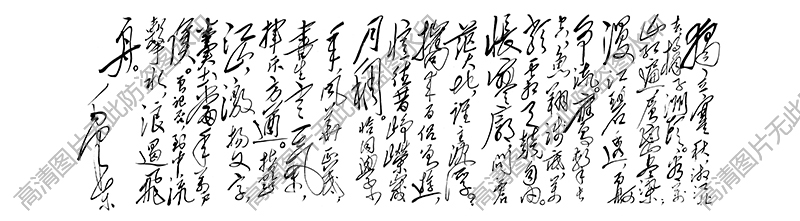 独立寒秋湘江北
去橘子洲头看万
山红遍层林尽染
漫江碧透百舸
争流。鹰击长
空鱼翔浅底万
类霜天竞自由
怅寥廓问苍
茫大地谁主沉浮
携来百侣曾游
忆往昔峥嵘岁
月稠。恰同学少
年风华正茂
书生意气
挥斥方遒。指点
江山激扬文字
粪土当年万户
侯。曾记否到中流
击水浪遏飞
舟。毛泽东
高清图片无此防